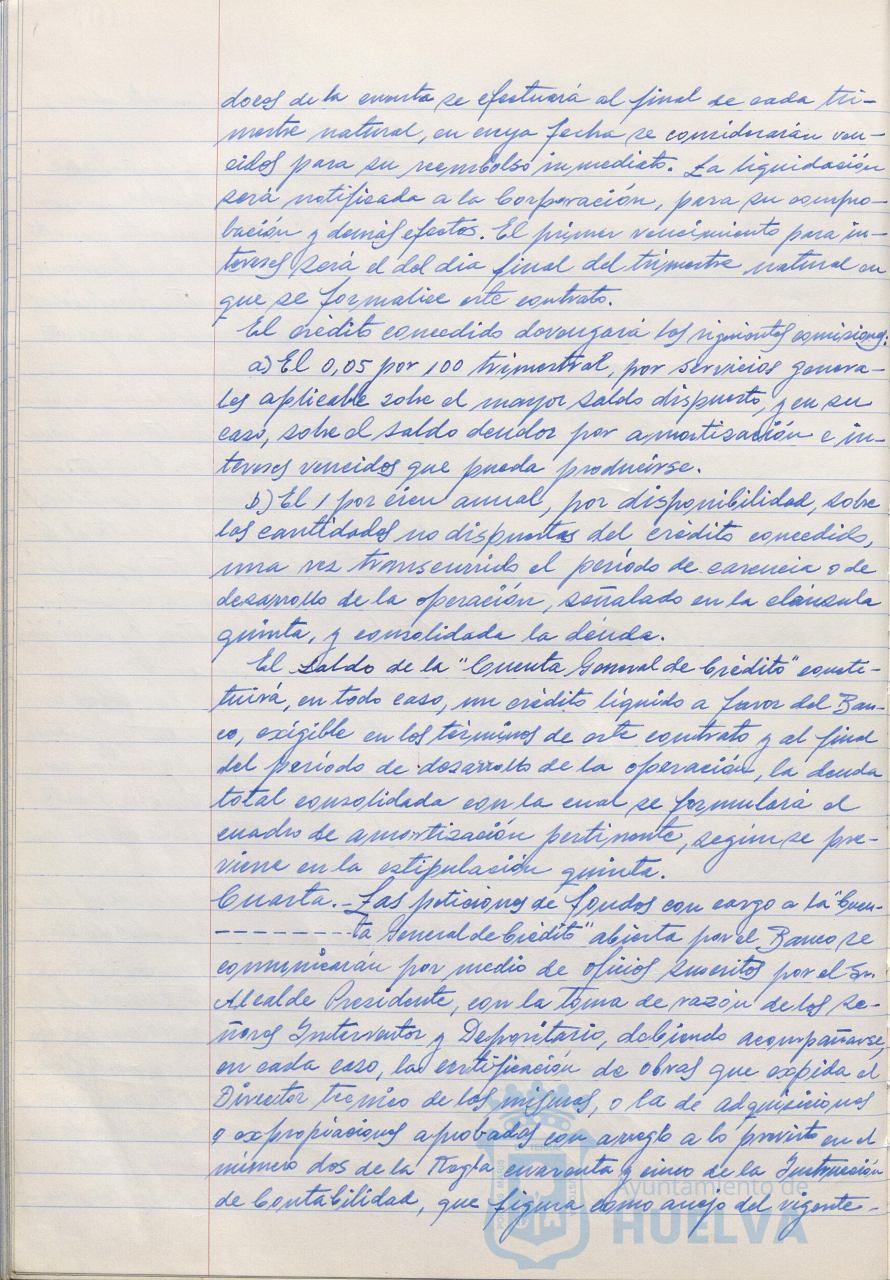 dores de la cuenta se efectuará al final de cada tri-
mestre natural, en cuya fecha se considerarán ven-
cidos para su reembolso inmediato. La liquidación
será notificada a la Corporación, para su compro-
bación y demás efectos. El primer vencimiento para in-
tereses será el del día final del trimestre natural en
que se formalice este contrato.
El crédito concedido devengará los siguientes comisiones:
a) El 0,05 por 100 trimestral, por servicios genera-
les aplicable sobre el mayor saldo dispuesto, y en su
caso, sobre el saldo deudor por amortización e in-
tereses vencidos que pueda producirse.
b) El 1 por cien anual, por disponibilidad, sobre
las cantidades no dispuestas del crédito concedido,
una vez transcurrido el período de carencia o de
desarrollo de la operación, señalado en la cláusula
quinta, y consolidada la deuda.
El saldo de la "Cuenta General de Crédito" consti-
tuirá, en todo caso, un crédito líquido a favor del Ban-
co, exigible en los términos de este contrato y al final
del período de desarrollo de la operación, la deuda
total consolidada con la cual se formulará el
cuadro de amortización pertinente, según se pre-
viene en la estipulación quinta.
Cuarta.- Las peticiones de fondos con cargo a la "Cuen-
---------ta General de Crédito" abierta por el Banco se
comunicarán por medio de oficios suscritos por el Sr.
Alcalde Presidente, con la toma de razón de los Se-
ñores Interventor y Depositario, debiendo acompañarse,
en cada caso, la certificación de obras que expida el
Director técnico de los mismos, o la de adquisiciones
o expropiaciones aprobadas con arreglo a lo previsto en el
número dos de la Regla cuarenta y cinco de la Instrucción
de Contabilidad, que figura como anejo del vigente-
Ayuntamiento de
HUELVA